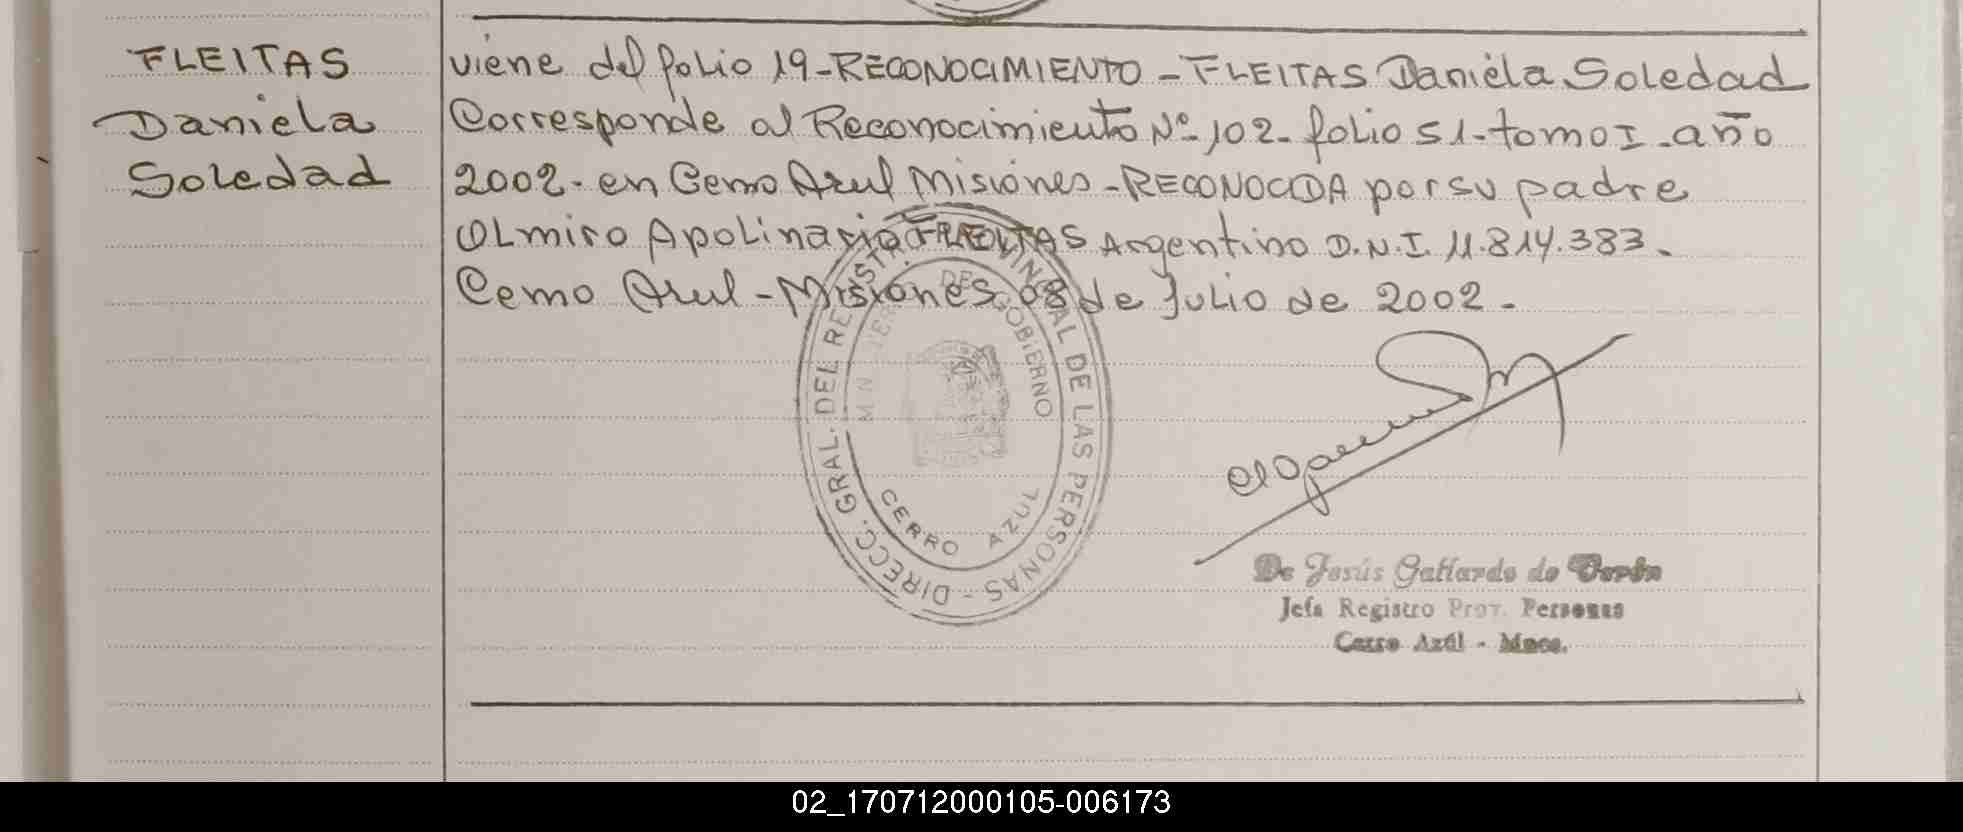 FLEITAS
Daniela
Soledad
viene del folio 19-RECONOCIMIENTO-FLEITAS Daniela Soledad
Corresponde al Reconocimiento Nº 102-folio 51-tomo I-año
2002-en Cerro Azul Misiones-RECONOCIDA por su padre
Olmiro Apolinario FLEITAS Argentino D.N.I. 11.814.383.
Cerro Azul-Misiones 08 de Julio de 2002.
DIRECC. GRAL. DEL REGISTRO PROVINCIAL DE LAS PERSONAS -
DE GOBIERNO
CERRO AZUL
De Jesús Gallardo de
Jefa Registro Prov. Personas
Cerro Azúl - Mnes.
02_170712000105-006173